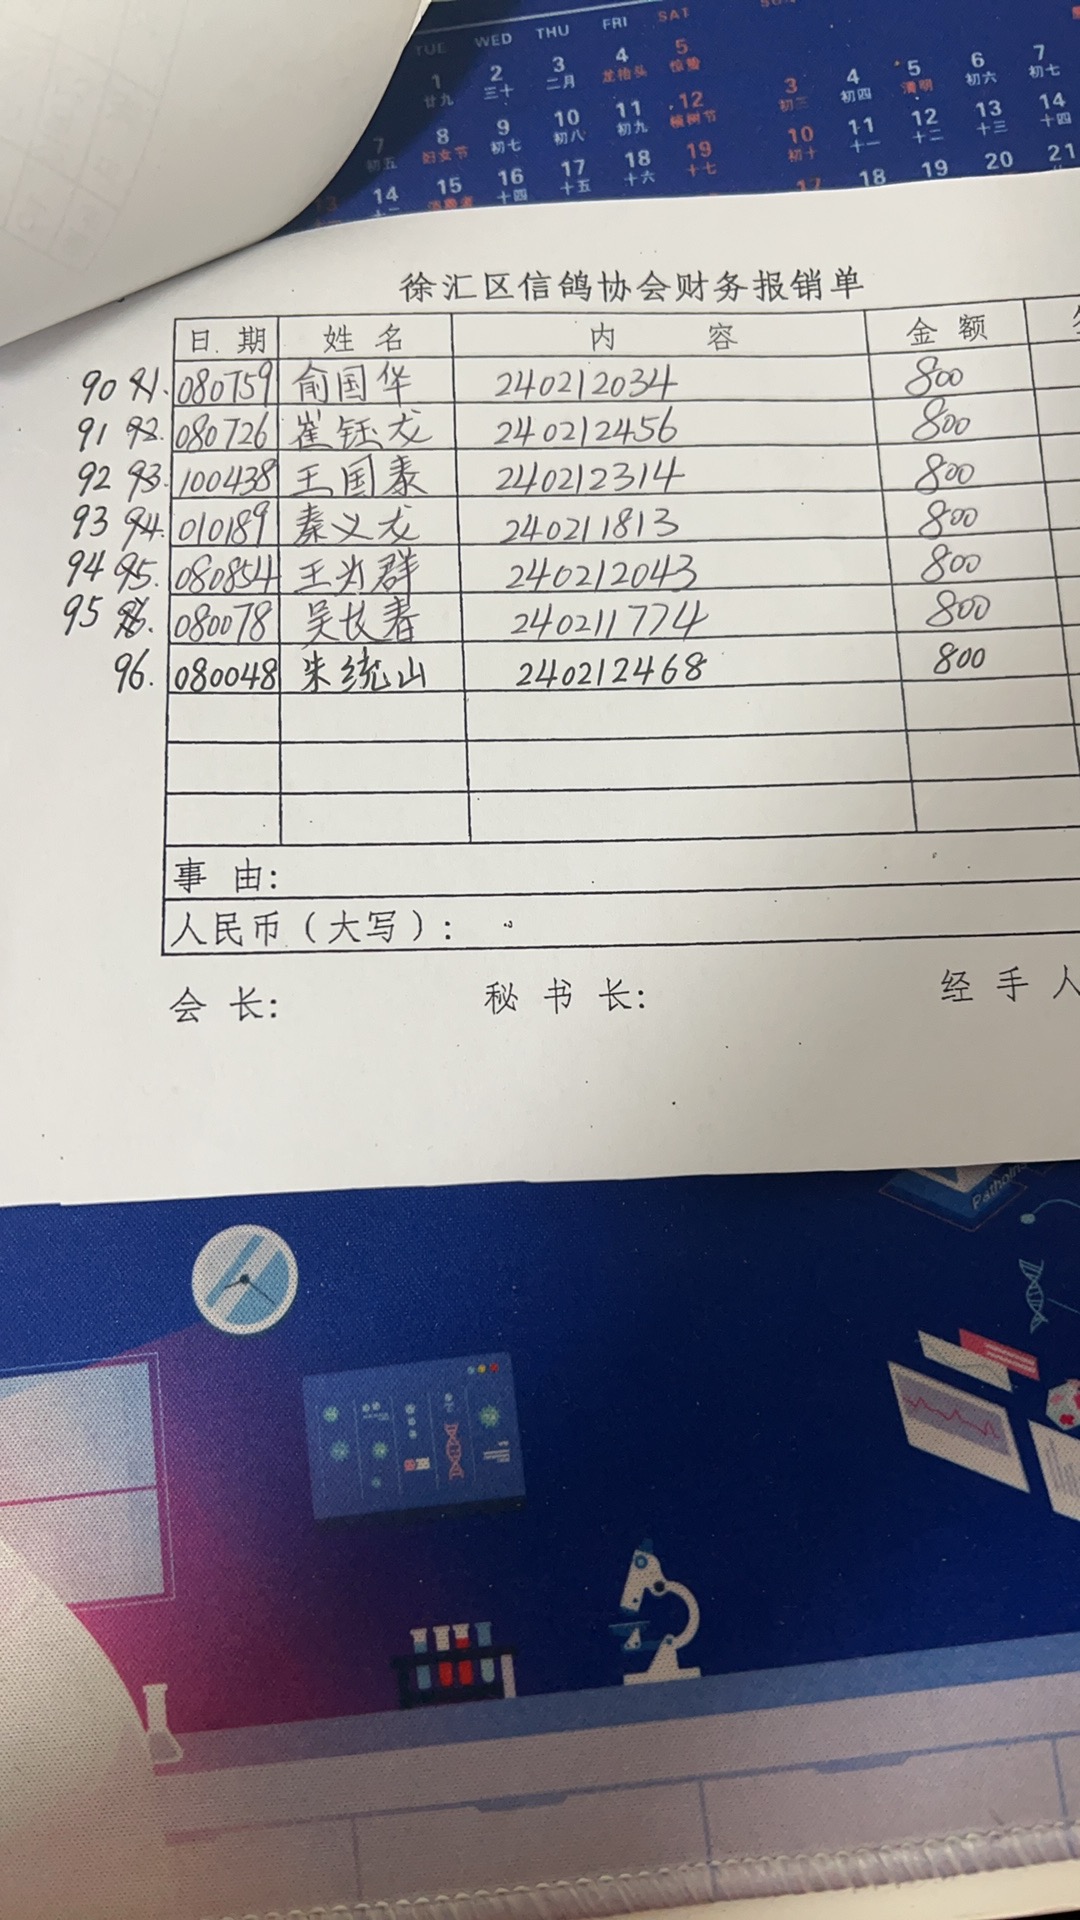 TUE WED THU FRI SAT SUN
1 2 3 4 5
廿九 三十 二月 龙抬头 惊蛰
3 4 5 6 7
初三 初四 清明 初六 初七
7 8 9 10 11 12
初五 妇女节 初七 初八 初九 植树节
10 11 12 13 14
初十 十一 十二 十三 十四
13 14 15 16 17 18 19
十二 消费者 十四 十五 十六 十七
17 18 19 20 21
徐汇区信鸽协会财务报销单
日期 姓名 内容 金额
90 91. 080759 俞国华 240212034 800
91 92. 080726 崔钰龙 240212456 800
92 93. 100438 王国泰 240212314 800
93 94. 010189 秦义龙 240211813 800
94 95. 080854 王为群 240212043 800
95 96. 080078 吴长春 240211774 800
96. 080048 朱统山 240212468 800
事由:
人民币(大写):
会长: 秘书长: 经手人